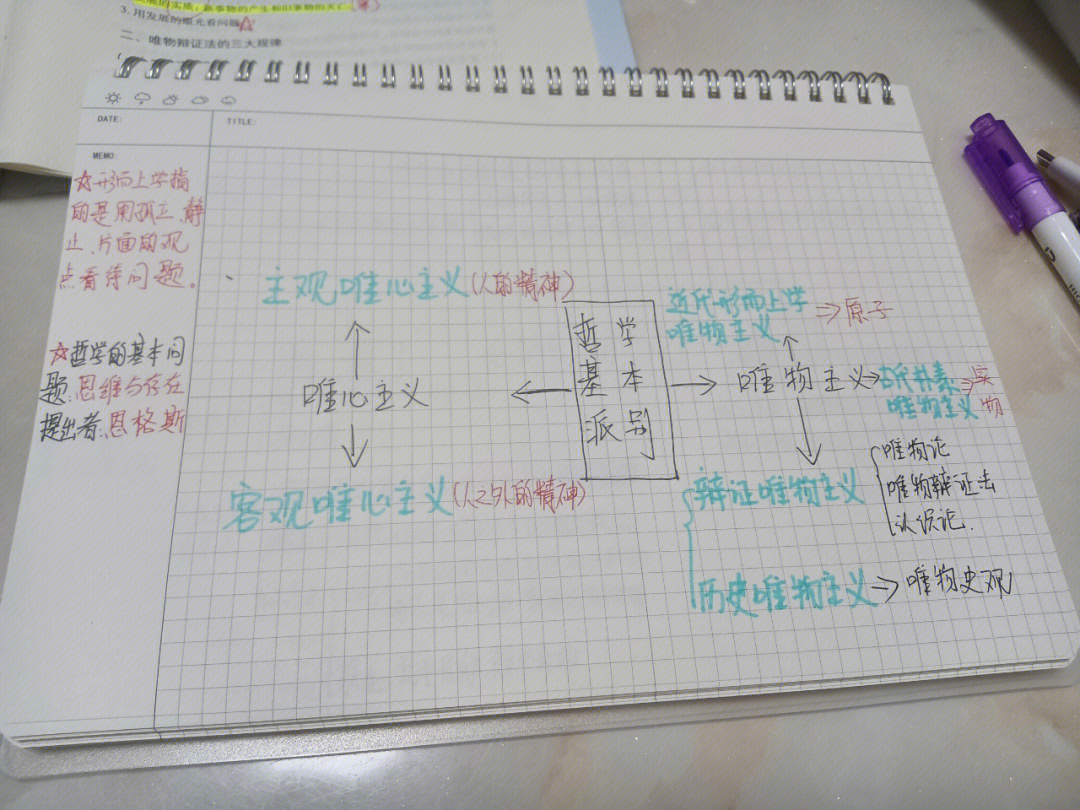 3. 用发展的眼光看问题
二、唯物辩证法的三大规律
DATE:
TITLE:
MEMO:
☆形而上学指
的是用孤立、静
止、片面的观
点看待问题。
☆哲学的基本问
题:思维与存在
提出者:恩格斯
主观唯心主义(人的精神)
唯心主义
客观唯心主义(人之外的精神)
哲学
基本
派别
近代形而上学
唯物主义
⇒原子
唯物主义
古代朴素
唯物主义
⇒实
物
辩证唯物主义
唯物论
唯物辩证法
认识论.
历史唯物主义
唯物史观